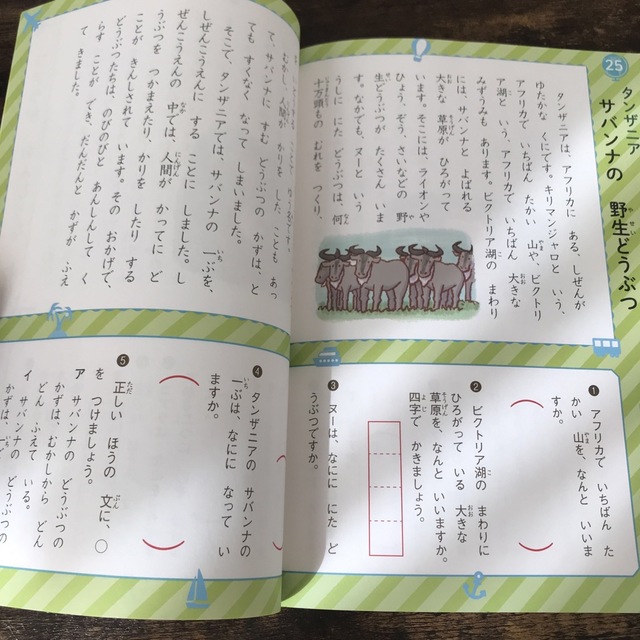 25
タンザニア
サバンナの 野生どうぶつ
タンザニアは、アフリカに ある、しぜんが
ゆたかな くにです。キリマンジャロと いう、
アフリカで いちばん たかい 山や、ビクトリ
ア湖と いう、アフリカで いちばん 大きな
みずうみも あります。ビクトリア湖の まわり
には、サバンナと よばれる
大きな 草原が ひろがって
います。そこには、ライオンや
ひょう、ぞう、さいなどの 野
生どうぶつが たくさん いま
す。なかでも、ヌーと いう
うしに にた どうぶつは、何
十万頭もの むれを つくり、
むかし、人間が かりを した ことも あっ
て、サバンナに すむ どうぶつの かずは、と
ても すくなく なって しまいました。
そこで、タンザニアでは、サバンナの 一ぶを、
しぜんこうえんに する ことに しました。し
ぜんこうえんの 中では、人間が かってに ど
うぶつを つかまえたり、かりを したり する
ことが きんしされて います。その おかげで、
どうぶつたちは、のびのびと あんしんして く
らす ことが でき、だんだんと かずが ふえ
て きました。
❶ アフリカで いちばん た
かい 山を、なんと いいま
すか。
❷ ビクトリア湖の まわりに
ひろがって いる 大きな
草原を、なんと いいますか。
四字で かきましょう。
❸ ヌーは、なにに にた ど
うぶつですか。
❹ タンザニアの サバンナの
一ぶは、なにに なって い
ますか。
❺ 正しい ほうの 文に、○
を つけましょう。
ア サバンナの どうぶつの
かずは、むかしから どん
どん ふえて いる。
イ サバンナの どうぶつの